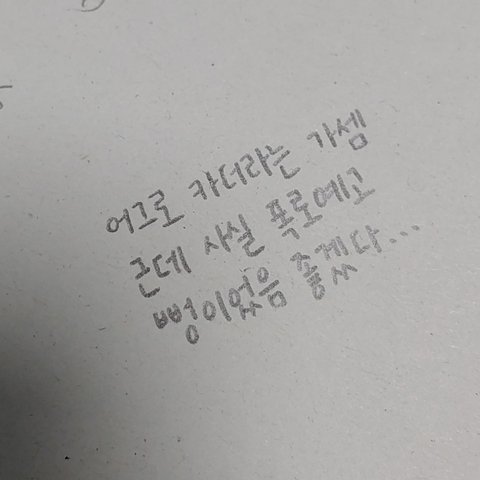 어그로 카더라는 가셈
근데 사실 폭로예고
뻥이었음 좋겠다...